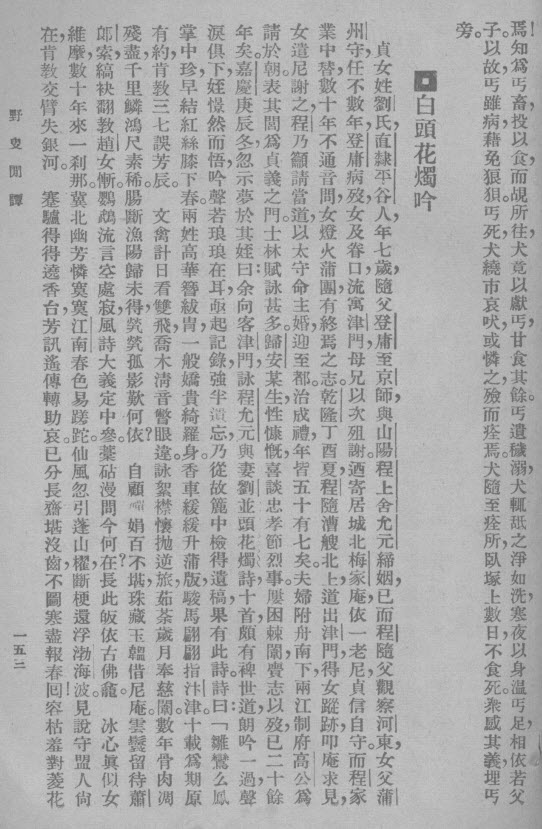 焉！知爲丐畜，投以食而覘所往，犬竟以獻丐，甘食其餘。丐遺穢溺，犬輒舐之淨如洗，寒夜以身溫丐足，相依若父
子。以故丐雖病，藉免狼狽。丐死，犬繞市哀吠，或憐之，殮而瘞焉。犬隨至瘞所，臥塚上，數日不食死。衆感其義，埋丐
旁。
白頭花燭吟
貞女姓劉氏，直隸平谷人，年七歲，隨父登庸至京師，與山陽程上舍允元締姻，已而程隨父觀察河東，女父蒲
州守，任不數年，登庸病歿，女及眷口流寓津門，母兄以次殂謝，迺寄居城北梅家庵，依一老尼，貞信自守，而程家
業中替，數十年不通音問，女燈火蒲團，有終焉之志。乾隆丁酉夏，程隨漕艘北上，道出津門，得女蹤跡，叩庵求見，
女遣尼謝之，程乃籲請當道，以太守命主婚，迎至都治成禮，年皆五十有七矣。夫婦附舟南下，兩江制府高公爲
請於朝，表其閭爲貞義之門，士林賦詠甚多。歸安某生，性慷慨，喜談忠孝節烈事，屢困棘闈，齎志以歿，已二十餘
年矣。嘉慶庚辰冬，忽示夢於其姪：余向客津門，詠程允元與妻劉並頭花燭詩十首，頗有裨世道，朗吟一過，聲
淚俱下，姪憬然而悟，吟聲若琅琅在耳，亟起記錄，強半遺忘，乃從故簏中檢得遺稿，果有此詩。詩曰：「雛鸞么鳳
掌中珍，早結紅絲膝下春。兩姓高華簪紱胄，一般嬌貴綺羅身。香車緩緩升蒲版，駿馬翩翩指汴津。十載爲期原
有約，肯教三七誤芳辰。　文禽計日看雙飛，喬木淸音瞥眼違。詠絮襟懷拋逆旅，茹荼歲月奉慈闈。數年骨肉凋
殘盡，千里鱗鴻尺素稀。腸斷漁陽歸未得，煢煢孤影歎何依？　自顧娟百不堪，珠藏玉韞借尼庵。雲鬟留待蕭
郎索，縞袂翻敎趙女慚。鸚鵡流言空處寂，風詩大義定中參。藁砧漫問今何在？長此皈依古佛龕。　冰心眞似女
維摩，數十年來一刹那。冀北幽芳憐寞寞，江南春色易蹉跎。仙風忽引蓬山櫂，斷梗還浮渤海波。見說守盟人尙
在，肯教交臂失銀河。　蹇驢得得遶香台，芳訊遙傳轉助哀。已分長齋堪沒齒，不圖寒盡報春回！容枯羞對菱花
野叟閒譚
一五三